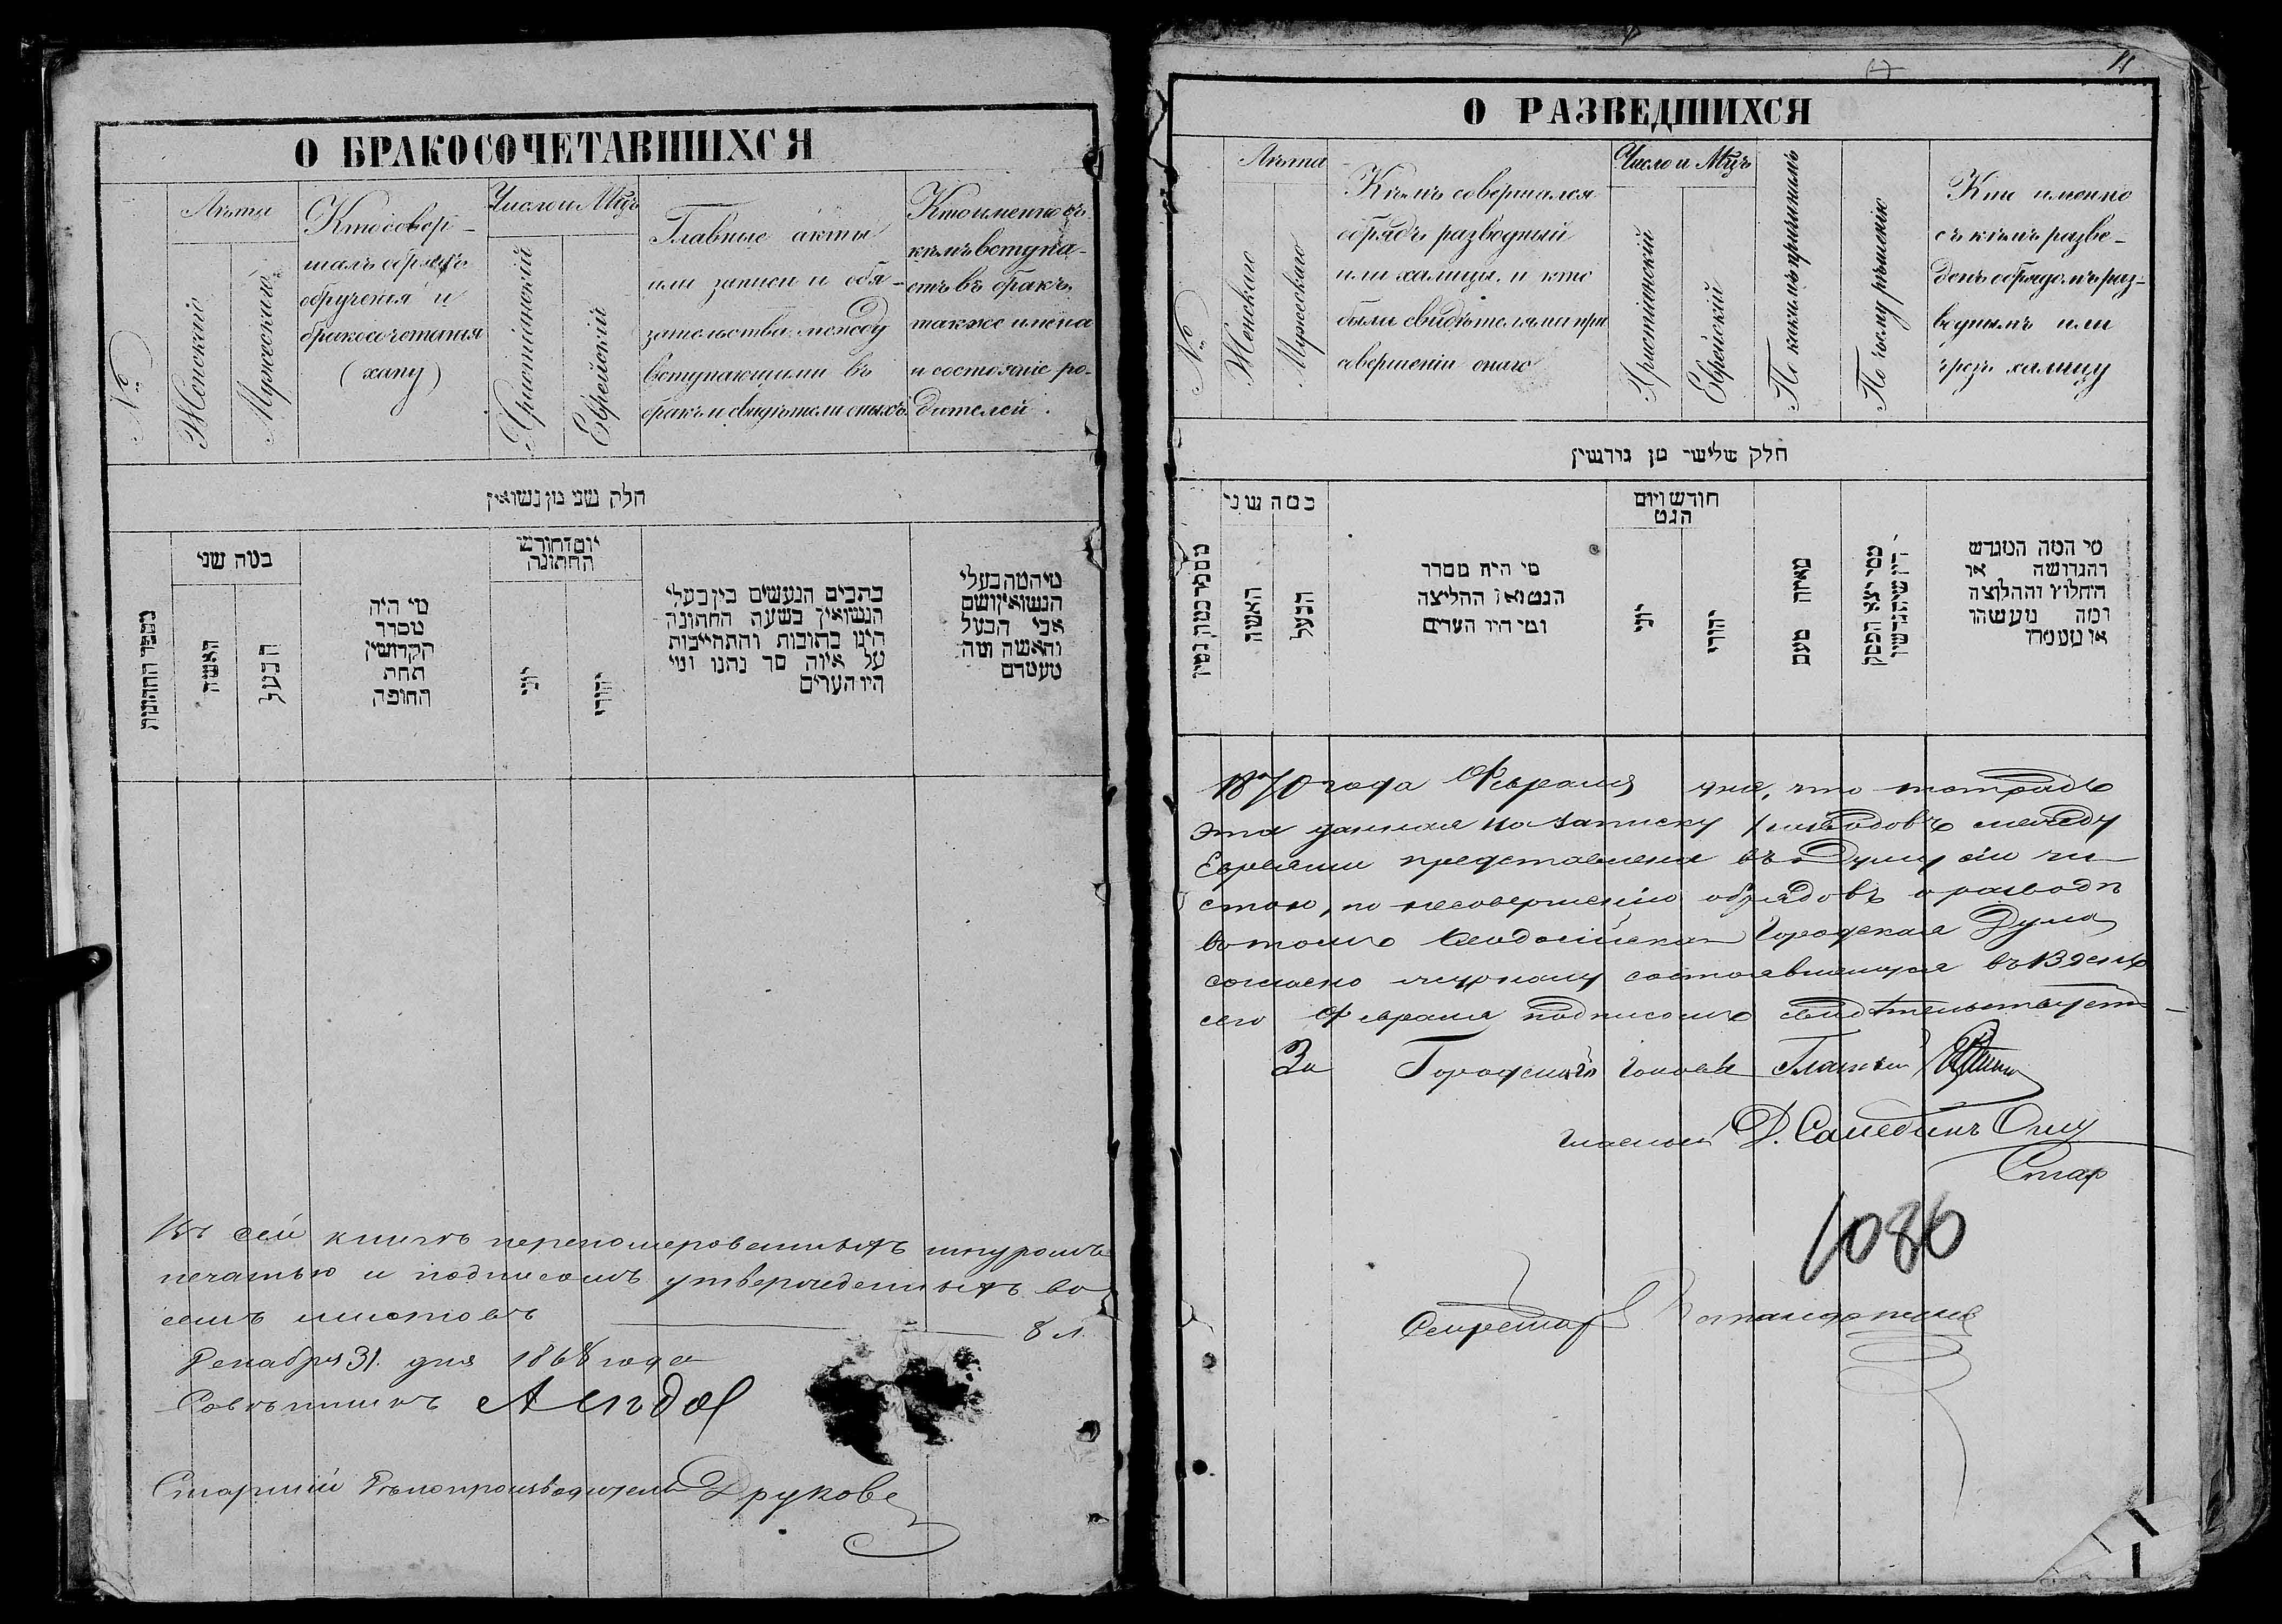 О БРАКОСОЧЕТАВШИХСЯ
№
Лѣта
Женскій
Мужескій
Кто совер-
шалъ обрядъ
обрученія и
бракосочетанія
(хапу)
Число и Мѣц
Христіанскій
Еврейскій
Главные акты
или записи и обя-
зательства между
вступающими въ
бракъ и свидѣтели оныхъ
Кто именно съ
кѣмъ вступа-
етъ въ бракъ,
также имена
и состояніе ро-
дителей.
חלק שני מן נשואין
מספר החתונות
במה שני
האשה
הבעל
מי היה
מסדר
הקדושין
תחת
החופה
יום וחודש
החתונה
יוני
יהודי
כתבים הנעשים בין בעלי
הנשואין בשעת החתונה
היינו כתובות והתחייבות
על איזה סך נתנו ומי
היו העדים
מי המה בעלי
הנשואין ושם
אבי הבעל
והאשה ומה
מעמדם
Въ сей книгѣ перенумерованныхъ шнуромъ
печатью и подписомъ утвержденныхъ во
семь листовъ 8 л.
Декабря 31 дня 1868 года
Совѣтникъ
Старшій Дѣлопроизводитель
О РАЗВЕДШИХСЯ
№
Лѣта
Женскаго
Мужескаго
Кѣмъ совершался
обрядъ разводный
или халицы, и кто
были свидѣтелями при
совершеніи онаго
Число и Мѣць
Христіанскій
Еврейскій
По какимъ причинамъ
По чьему рѣшенію
Кто именно
съ кѣмъ разве-
денъ обрядомъ раз-
воднымъ или
чрезъ халицу
חלק שלישי מן גרושין
מספר כמה גטין
כמה שני
האשה
הבעל
מי היה מסדר
הגט או ההליצה
ומי היו העדים
חודש ויום
הגט
יוני
יהודי
מאיזה טעם
ממי יצא הפסק
דין שיתגרשו
מי המה המגרש
והגרושה או
החלוץ והחלוצה
ומה מעשהו
או מעמדו
1870 года Февраля дня, что тетрадь
эта данная на записку разводовъ между
Евреями представлена въ Думу сію чи-
стою, по несовершенію обрядовъ о разводѣ
въ томъ Ѳеодосійская Городская Дума
согласно журналу состоявшемуся въ 13 день
сего Февраля подписомъ свидѣтельствуетъ
За Городскаго Голову Гласный
Гласный Д.
1086
Секретарь